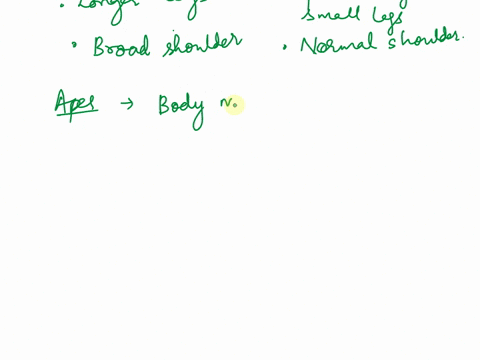 · Longer
small legs
· Broad shoulder · Normal shoulder.
Apes → Body